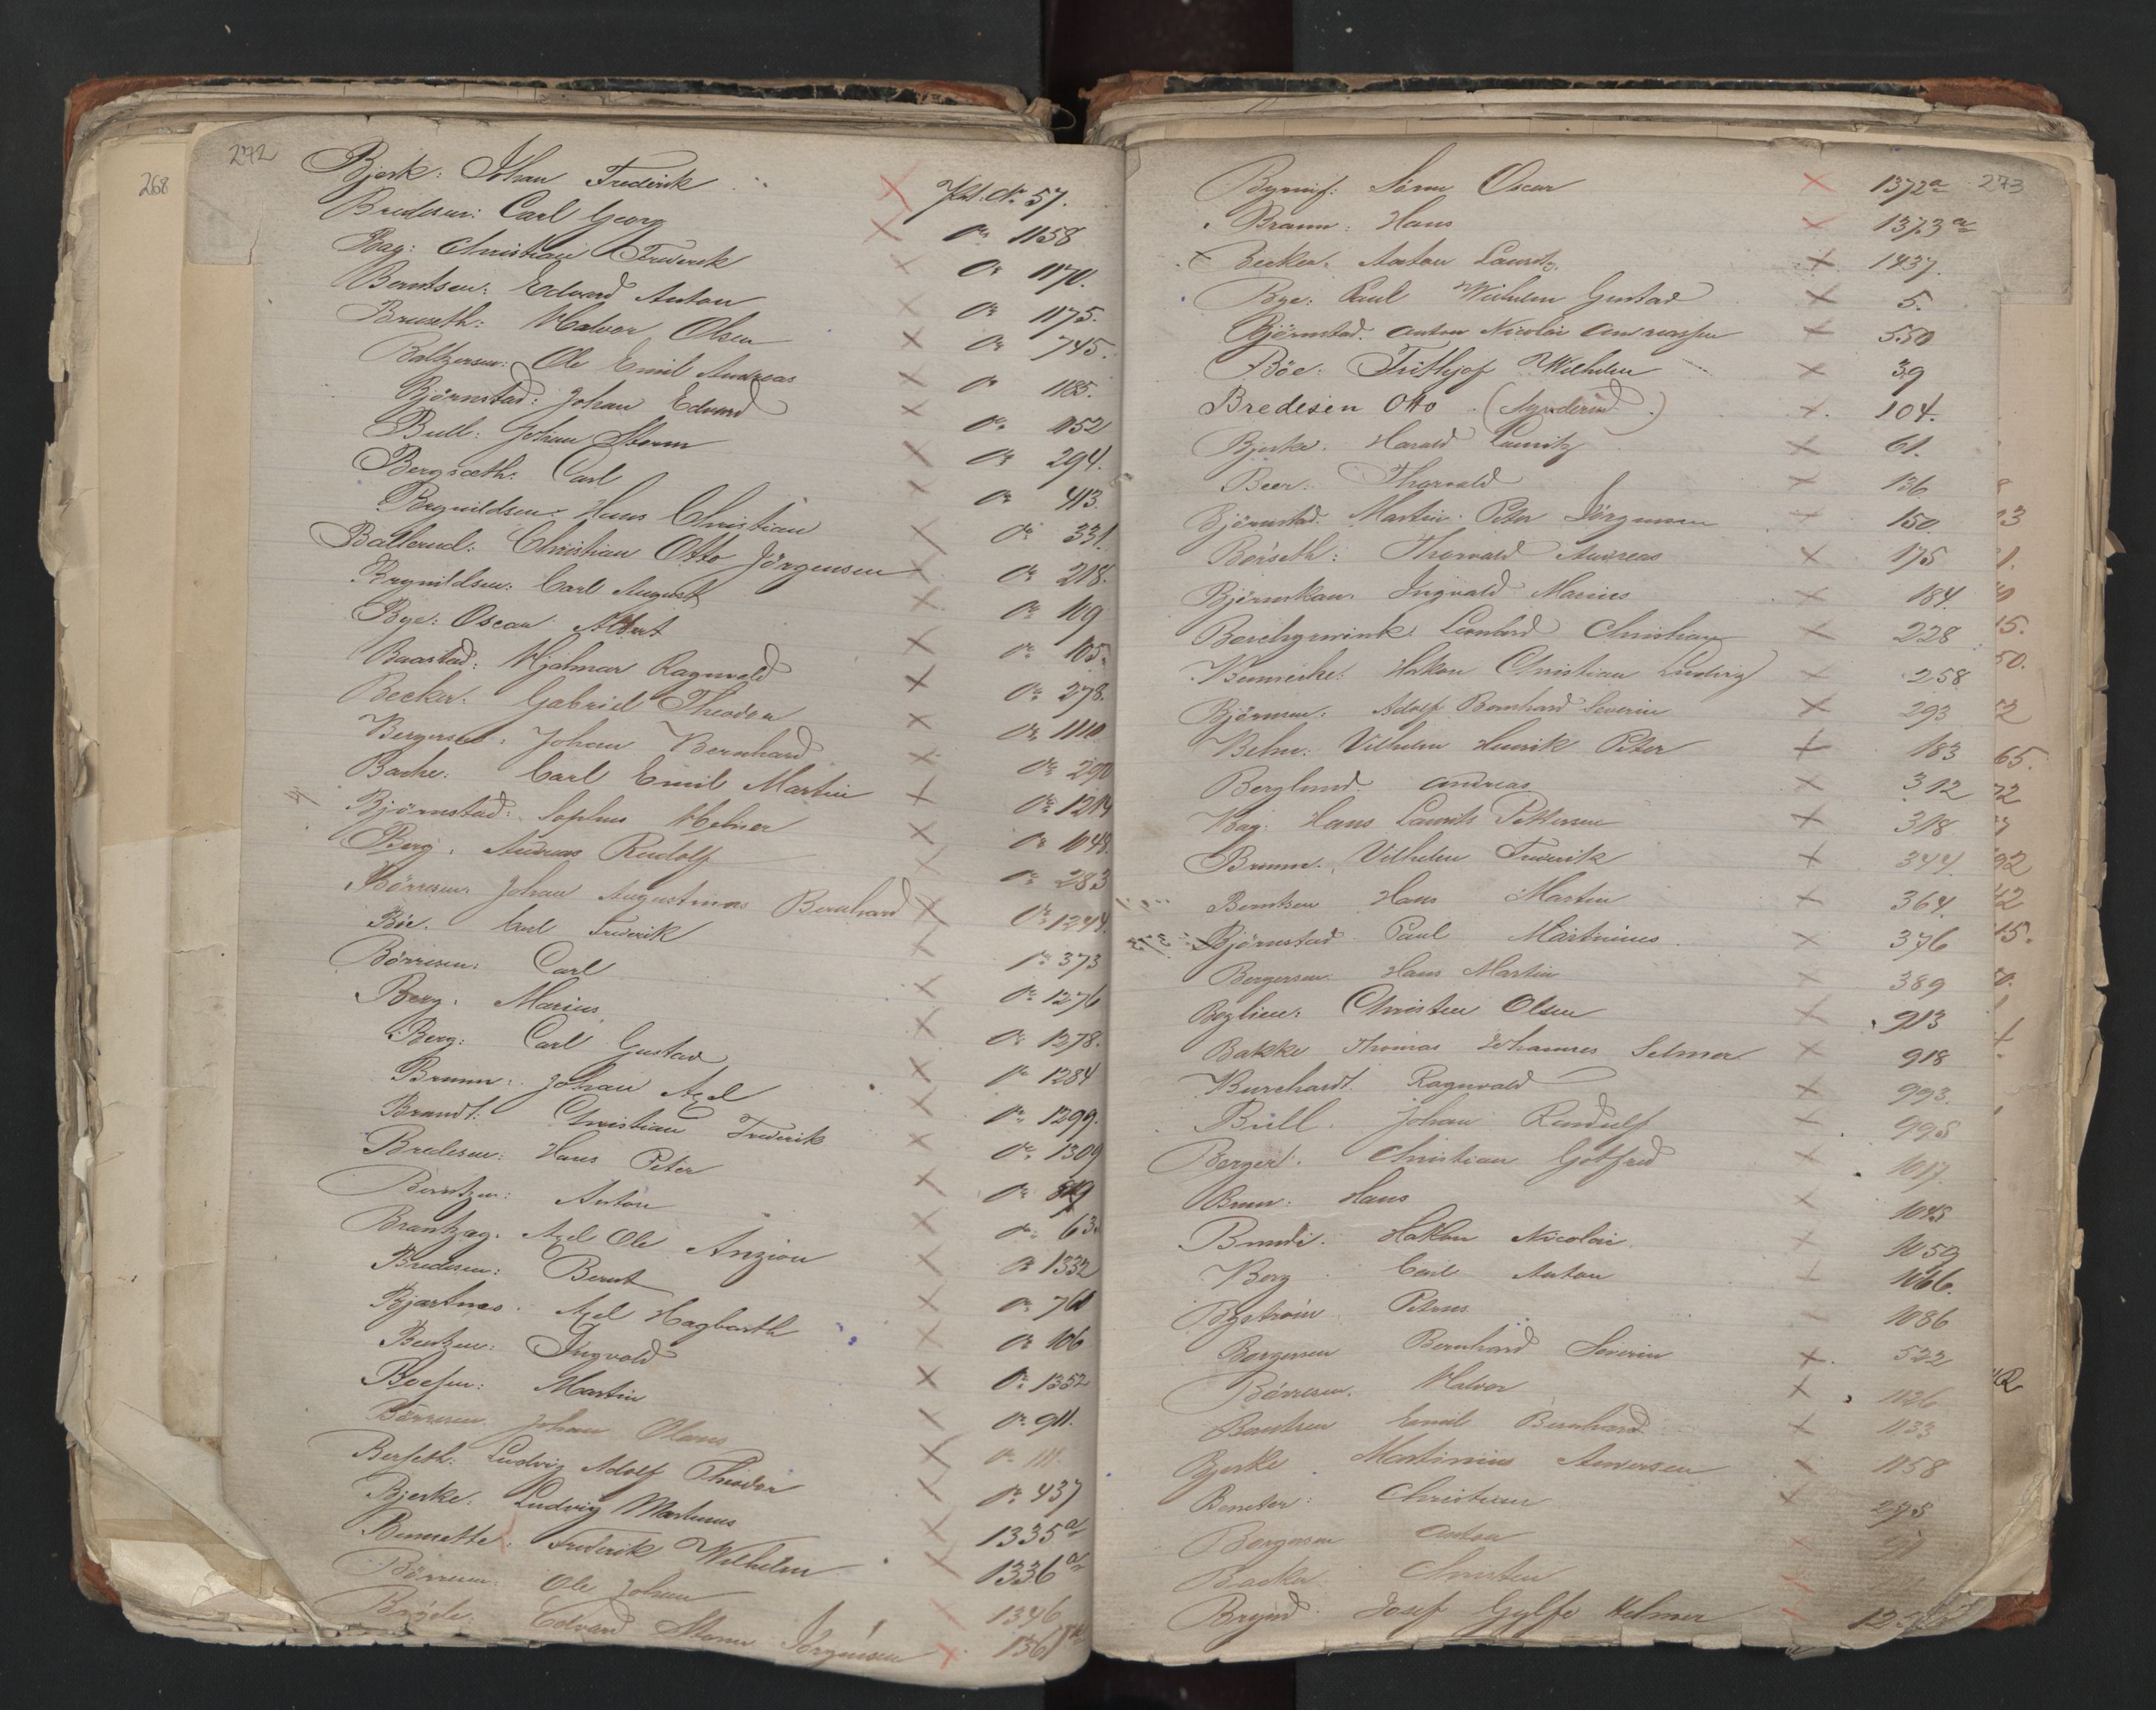 268
272
Bjerk: Johan Frederik × Pat. No 57.
Bredesen: Carl Georg × " 1158
Bag: Christian Frederik × " 1170.
Berntsen: Edvard Anton × " 1175.
Bruseth: Halvor Olsen × " 745.
Baltzersen: Ole Emil Andreas × " 1185.
Bjørnstad: Johan Edvard × " 1152
Bull: Johan Storm × " 294.
Bergsæth: Carl × " 413.
Bergnildsen: Hans Christian × " 331.
Ballerud: Christian Otto Jörgensen × " 218.
Carl August × " 119
Bye: Oscar Albert × " 105.
Baastad: Hjalmar Ragnvald × " 278.
Becker: Gabriel Theodor × " 1110
Bergersen: Johan Bernhard × " 290
Bache: Carl Emil Martin × " 1214
Bjørnstad: Sophus Helmer × " 1048.
Berg. Andreas Rudolf × " 283
Börresen: Johan Augustinus Bernhard × " 1244.
Böe. Carl Frederik × " 373
Börresen: Carl × " 1276
Berg. Marius × " 1278.
Berg: Carl Gustav × " 1284
Brunn: Johan Axel × " 1299.
Brandt: Christian Frederik × " 1309
Bredesen: Hans Peter × " 819
Berntzen: Anton × " 63.
Brantzæg. Axel Ole Anzion × " 1332
Bredesen: Bernt × " 761
Bjartnæs. Axel Hagbarth × " 106
Bentzen: Ingvald × " 1352
Boesen: Martin × " 911.
Börresen: Johan Olaus × " 111.
Berseth: Ludvig Adolf Theodor × " 437
Bjerke: Ludvig Martinus × 1335 a
Frederik Wilhelm × 1336 a
Börresen: Ole Johan × 1346
Edvard Storm Jörgensen × 1361
273
Sörn Oscar × 1372 a
Braun: Hans × 1373 a
× Becker. Anton Lauritz. × 1437.
Bye: Paul Wilhelm Gustav × 5.
Björnstad. Anton Nicolai Andreassen × 550
Böe: Frithjof Wilhelm × 39
Bredesen Otto × 104.
Bjerke. Harald Lauritz × 61.
Beer: Thorvald × 136
Björnstad. Martin Peter Jörgensen × 150
Borseth: Thorvald Andreas × 175
Ingvald Marius × 184.
Borchgrevink. Leonhard Christian × 228
Hakon Christian Ludvig × 258
Björnsen: Adolf Bernhard Severin × 293
Behn: Vilhelm Henrik Peter × 183
Berglund Andreas × 312
Bag: Hans Laurits Pettersen × 318
Brunn. Vilhelm Frederik × 344.
Berntsen Hans Martin × 364.
Björnstad Paul Martinius × 376
Bergersen. Hans Martin × 389
Christen Olsen × 913
Bakke Thomas Johannes Selmer × 918
Burchardt. Ragnvald × 993.
Bull. Johan Randulf × 995
Berger. Christian Gotfred × 1017.
Brun: Hans × 1045
Hakon Nicolai × 1059
Berg Carl Anton × 1066.
Byström Petrus 1086
Borgersen Bernhard Severin × 522
Börresen. Halvor × 1126
Berntsen Emil Bernhard × 1133
Bjerke Martinius Andersen × 1158
Christian × 275
Borgersen Anton ×
Backe Christen ×
Josef Gylfe Helmer ×